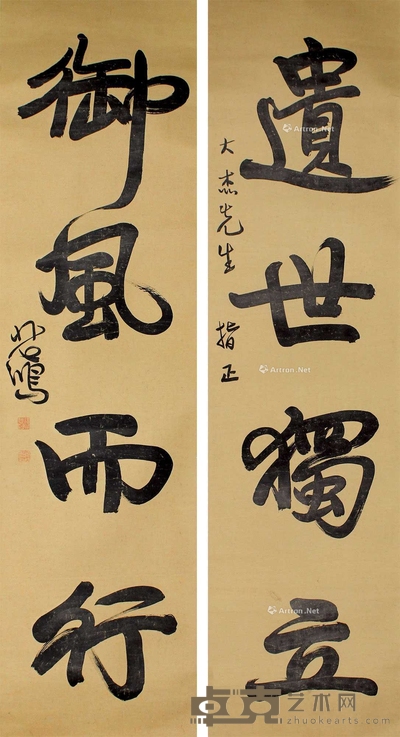 遺世獨立
大杰先生 指正
御風而行
悲鴻
Artron.Net
Artron.Net
Artron.Net
卓克艺术网
zhuokearts.com